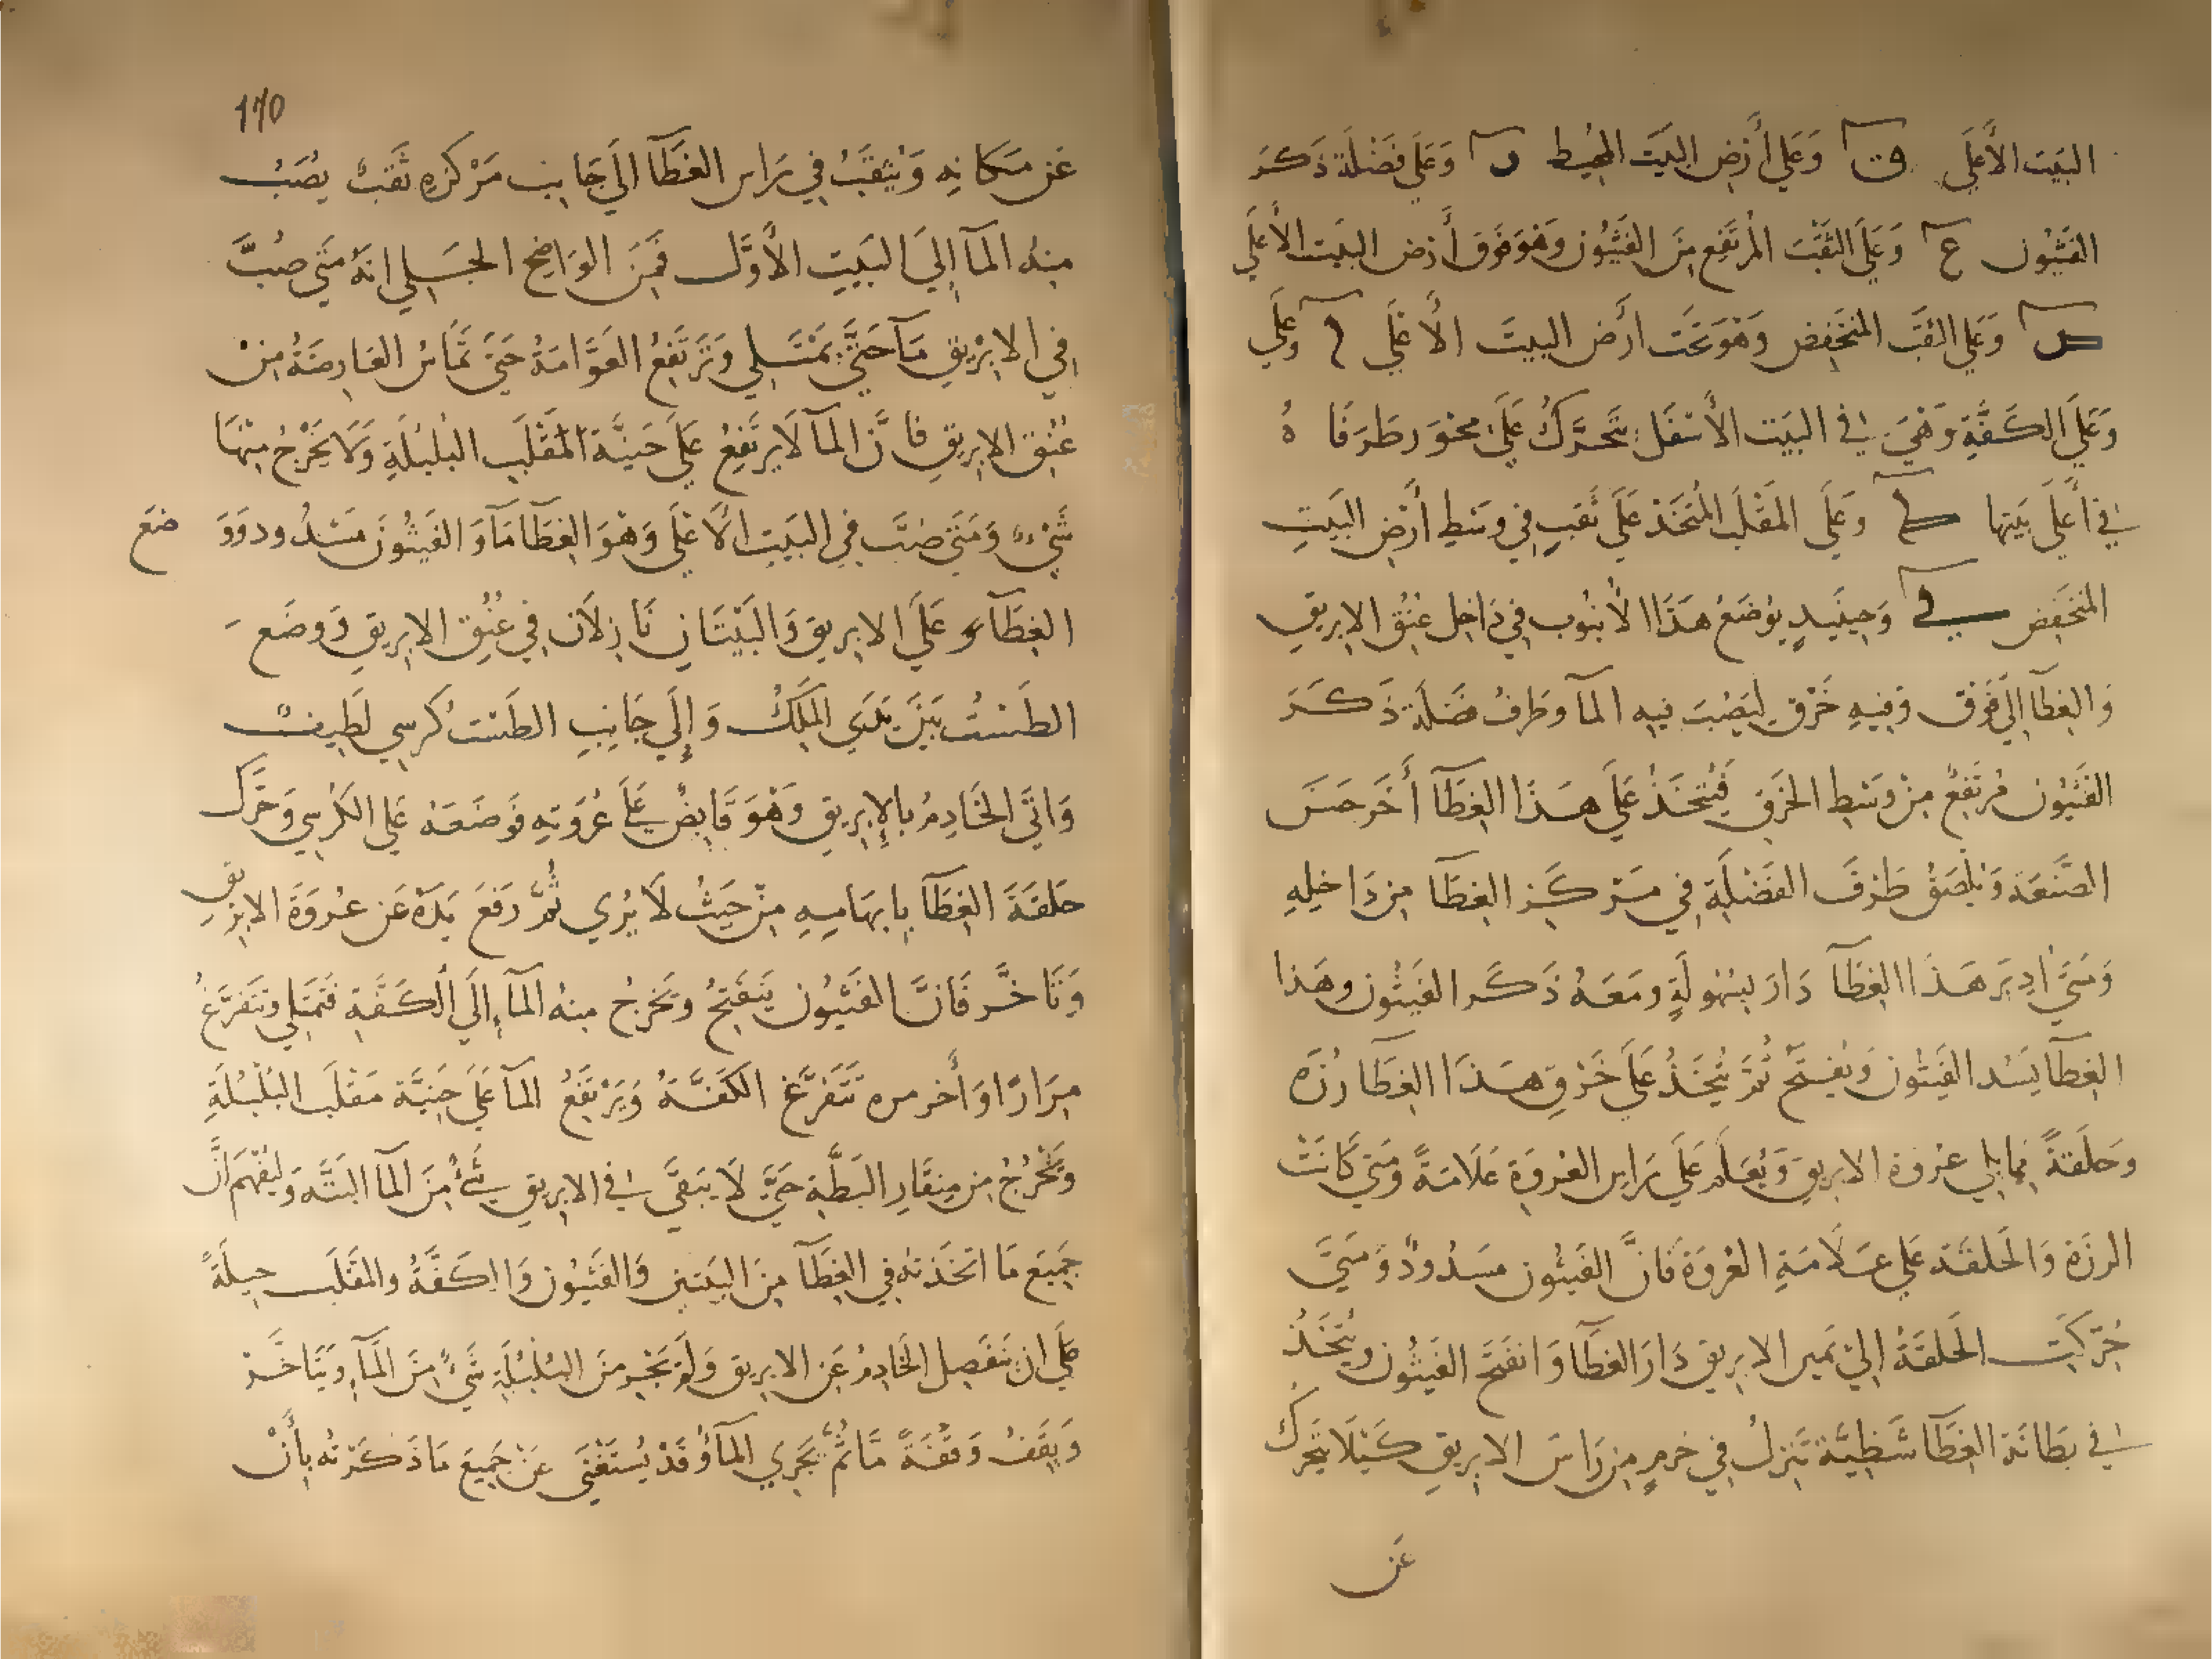 البَيت الأَعلَى ق وَعَلَى أَرْضِ البَيت المحِيط ر وَعَلَى فَضْلَة ذَكَر
الفَثيُون ع وَعَلَى الثَّقْبِ المُرتَفِع مِنَ الفَثيُون وَهوَ فَوقَ أَرْض البَيت الأَعلَى
ص وَعَلَى الثقب المنخَفِض وَهوَ تَحَت أَرْض البيت الأعلَى ل وعَلَى
وَعَلَى الكَفَّةِ وَهيَ في البَيت الأسفَل تتحَرَّكُ عَلَى محْوَر وطَرَفَا هُ
في أَعلَى بَيتها ك وَعَلَى المَقْلَب المُتخَذ عَلَى ثَقبٍ في وسَطِ أَرْض البَيتِ
المنخَفِض في وَحِينَيذٍ يُوضَعُ هَذَا الأُنبُوب فِي دَاخِل عُنُق الابريق
وَالغطَا إِلَى فَوَق وَفيهِ خَرْق ليُصَبَ فِيه المآ وطرفُ فَضلَة ذَكَر
الفَثيُون مُرتَفِعٌ مِنْ وسَطِ الخَرق فَيُتخَذُ عَلَى هَذَا الغِطَآ أخَر حَسَن
الصَّنعَة وَيُلصَقُ طَرَفَ الفَضْلَةِ فِي مَرْكَزِ الغِطَآ مِن دَاخِلِهِ
وَمَتَى اديرَ هَذَا الغِطَآ دَارَ بسُهُولَةٍ ومَعَهُ ذَكَر الفَيثُون وهَذا
الغِطَآ يَسُد الفَيثُون وَيَفْتَحُ ثُمَّ يُتَخَذُ عَلَى خَرْقِ هَذَا الغِطَا رُزَه
وَحلَقَةً ممَا يلي عُروَة الابريق وَيُعَلَّم عَلَى رَاسِ العُروَةِ عَلَامَةً ومَتَى كَانَتْ
الرزَة وَالحَلقَة عَلى عَلَامَةِ العُروَة فَانَّ الفَيثُون مَسدُودٌ وَمَتَى
حُرِّكَت الحَلقَةُ إلى يمَين الابريق دَارَ الغِطَآ وَانفتَحَ الفَيثُون ويُتَّخَذُ
في بطَانَة الغِطَآ شَظِيَّة تَنزلُ فِي خرمٍ مِن رَاسَ الابريق كَيلَا يتَحركُ
عَن
١٧٥
عَن مكَانِهِ وَيُثقَبُ في رَاسِ الغِطَآ إلَى جَانِب مَرْكَزهِ ثقبٌ يُصَبُ
مِنهُ المآ إِلَى البَيتِ الأَوَّل فَمِنَ الوَاضِح الجَلِي انهُ مَتَى صُبَّ
فِي الابْريقِ مَآ حَتَّى يمتَلي وَتَرتَفِعُ العَوَّامَةُ حَتَى تمَاسُ العَارِضَةُ مِنْ
عُنُقِ الابريقِ فَانَّ المآ لَا يَرتَفِعُ عَلَى حَنيَّةَ المَقْلَب البُلبُلَةِ وَلَا يَخْرُجُ مِنْهَا
شَيْءٌ وَمَتَى صُبَّ فِي البَيتِ الأعلَى وَهوَ الغِطَا مَآ وَالفَيثُونَ مَسْدُود وَوَ ضَع
الغِطَآء عَلَى الابريق وَالبَيْتَانِ نَازِلَان فِي عُنُقِ الابريق وَوضَع
الطَستُ بَيْنَ يَدَي المَلكُ وَإِلَى جَانِبِ الطَسْت كُرسِي لَطِيفٌ
وَاتَى الخَادِمُ بالإبريق وَهوَ قَابِضٌ عَلَى عُروَتِهِ فَوَضَعَهُ عَلَى الكُرسِي وَحَرَّك
حَلقَةَ الغِطَآ بابهَامِهِ مِنْ حَيثُ لَا يُرى ثُمَّ رَفَعَ يَدَهُ عَن عُروَةَ الابرِيقِ
وَتَاخَّر فَانَّ الفَثيُون يَنفَتِحُ وَيَخرُجُ مِنهُ المآءِ إِلَى الكَفَّة فَتمتَلي وَتَتَفَرَّغُ
مِرَارًا وَأَخر مره تَتَفرَّغ الكَفَّةُ وَيَرْتَفِعُ المآ عَلَى حَنيَّة مَقْلَب البُلْبُلَةِ
وَيَخْرُجُ مِن مِنقَارِ البَطَّةِ حَتَّى لَا يَبقَى في الابريق شَيءٌ مِنَ المآ البَتَّه وَليُفْهَم انَّ
جَمِيَع مَا اتخَذتهُ فِي الغِطَآ مِنَ البَيتَيْنِ وَالفَثيُون وَالكَفَّةُ وَالمَقْلَب حِيلَةً
عَلَى ان يَنفَصِل الخَادِمُ عَنِ الابريق وَلَم يَجْرِ مِنَ البُلْبُلَةِ شَيءٌ مِنَ المآءِ وَيَتَاخَّرُ
وَيَقِفُ وَقفَةً مَا ثُمَّ يَجري المآ وَقَدْ يُستَغنَى عَنْ جَمِيَع مَا ذَكَرْتُه بِأَنْ